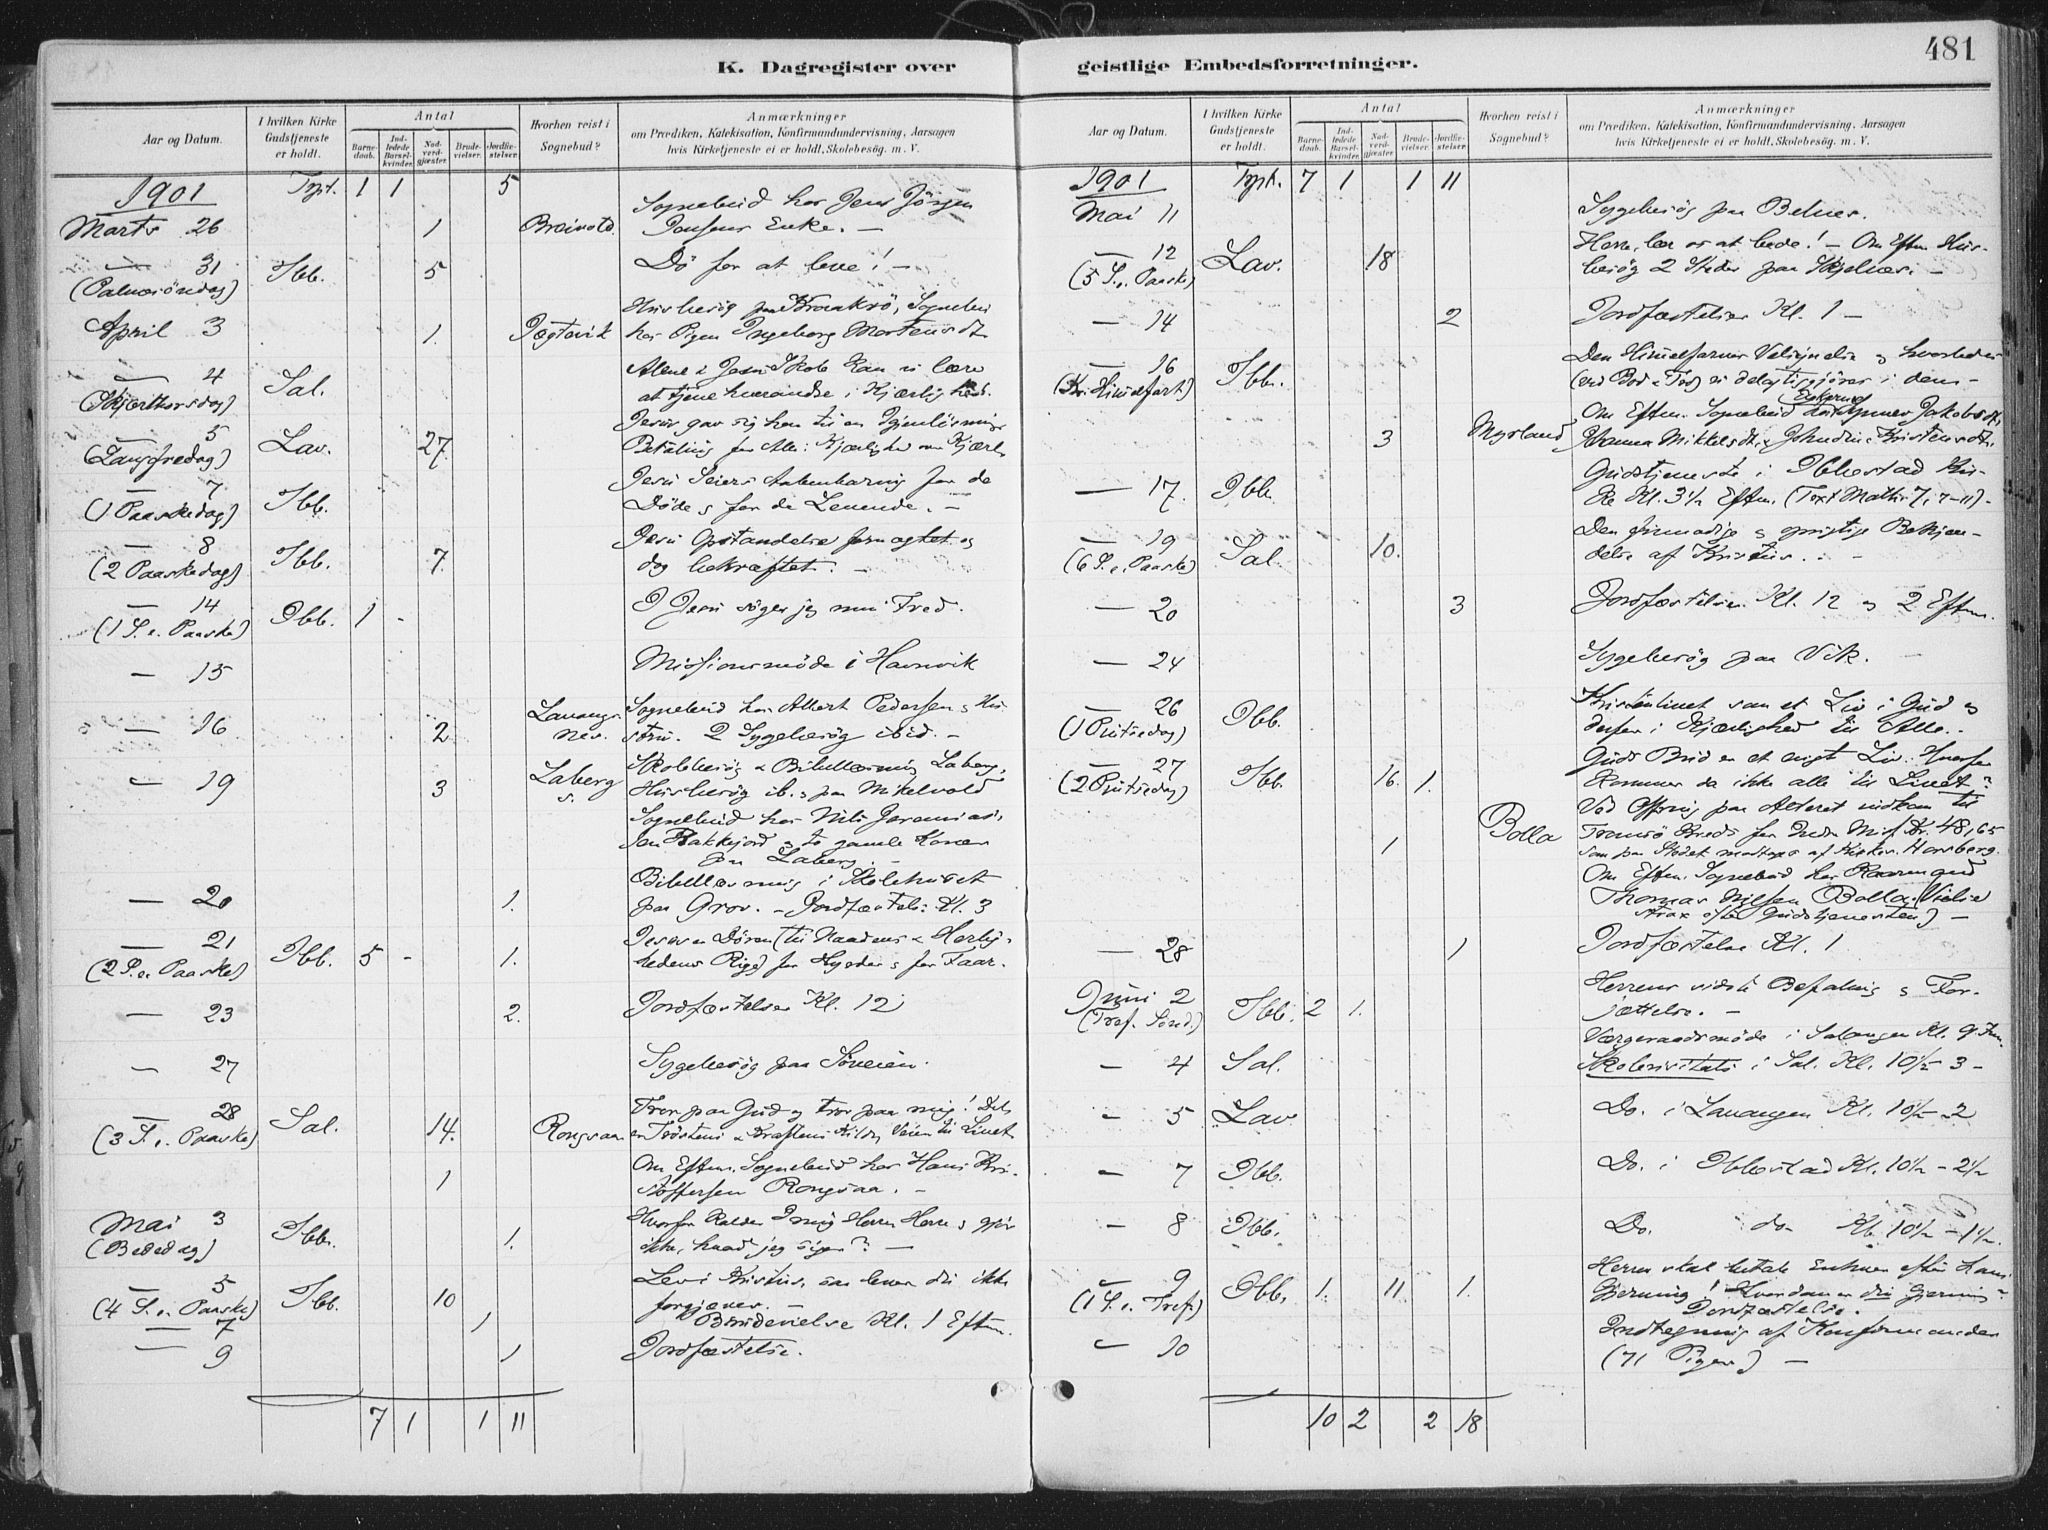 K. Dagregister over
Aar og Datum.
I hvilken Kirke Gudstjeneste er holdt.
Antal
Barne-daab.
Ind-ledede Barsel-kvinder.
Nad-verd-gjæster.
Brude-vielser.
Jordfæ-stelser.
Hvorhen reist i Sognebud?
Anmærkninger
om Prædiken, Katekisation, Konfirmandundervisning, Aarsagen
hvis Kirketjeneste ei er holdt. Skolebesøg. m. V.
1901 Trpt. 1 1 5
Marts 26 1 Breivold. Sognebud hos Jens Jörgen
Jensens Enke. —
— 31 (Palmesöndag) Ibb. 5 Dö for at leve! —
April 3 1. Jægtevik Husbesög paa Kraakrö, Sognebud
hos Pigen Ingeborg Mortensdt.
— 4 (Skjærthorsdag) Sal. Alene i Jesu Skole kan vi lære
at tjene hverandre i Kjærlighed.
— 5 (Langfredag) Lav. 27. Jesus gav sig hen til en Igjenlösnings
Betaling for Alle: Kjærlighed om Kjærl.
— 7 (1 Paaskedag) Ibb. Jesu Seiers Aabenbaring for de
Döde & for de Levende. —
— 8 (2 Paaskedag) Ibb. 7. Jesu Opstandelse fornægtet og
dog bekræftet. —
— 14 (1 S. e. Paaske) Ibb. 1 - I Jesu söger jeg min Fred.
— 15 Missionsmöde i Havnvik
— 16 2 Lavangs-
nes. Sognebud hos Albert Pedersen & Hu-
stru. 2 Sygebesög ibid. —
— 19 3 Laberg
s. Skolebesög & Bibellæsning Laberg,
Husbesög ib. & paa Mikelvold
Sognebud hos Nils Jeremias-
sen Bakkejord & to gamle Koner
paa Laberg. —
— 20 1. Bibellæsning i Skolehuset
paa Grov. — Jordfæstelse Kl. 3
— 21 (2 S. e. Paaske) Ibb. 5 - 1. Jesus er Dören (til Naadens & Herlig-
hedens Rige) for Hyrder & for Faar.
— 23 2. Jordfæstelser Kl. 12
— 27 Sygebesög paa Söveien.
— 28 (3 S. e. Paaske) Sal. 14. Rongsaa Tror paa Gud og tror paa mig! Det
er Tröstens & Kraftens Kilde, Veien til Livet
1 Om Eftm. Sognebud hos Hans Kri-
stoffersen Rongsaa. —
Mai 3 (Bededag) Ibb. 1. Hvorfor kalder I mig Herre Herre & gjör
ikke, hvad jeg siger? —
— 5 (4 S. e. Paaske) Ibb. 10 Lev i Kristus, saa lever du ikke
forgjæves. —
— 7 1 Brudevielse Kl. 1 Eftm.
— 9 1 Jordfæstelse.
7 1 1 11
geistlige Embedsforretninger.
481
Aar og Datum.
I hvilken Kirke Gudstjeneste er holdt.
Antal
Barne-daab.
Ind-ledede Barsel-kvinder.
Nad-verd-gjæster.
Brude-vielser.
Jordfæ-stelser.
Hvorhen reist i Sognebud?
Anmærkninger
om Prædiken, Katekisation, Konfirmandundervisning, Aarsagen
hvis Kirketjeneste ei er holdt. Skolebesøg. m. V.
1901 Trpt. 7 1 1 11
Mai 11 Sygebesög paa Belnes.
— 12 (5 S. e. Paaske) Lav. 18 Herre, lær os at bede! — Om Eftm. Hus-
besög 2 Steder paa Skjelnes. —
— 14 2 Jordfæstelser Kl. 1 —
— 16 (Kr. Himmelfart.) Ibb. Den Himmelfarnes Velsignelse & hvorledes
(ved Bod & Tro) vi delagtiggjöres i den. —
3 Myrland Om Eftm. Sognebud hos Enkerne Jakobsdt.,
Johanna Mikkelsdt. & Johndine Kristensdt.
— 17. Ibb. Gudstjeneste i Ibbestad Kir-
ke Kl. 3½ Eftm. (Text Matth. 7, 7-11). -
— 19 (6 S. e. Paaske) Sal. 10. Den frimodige & oprigtige Bekjen-
delse af Kristus. . -
— 20 3 Jordfæstelser Kl. 12 & 2 Eftm.
— 24 Sygebesög paa Vik. —
— 26 (1 Pintsedag) Ibb. Kristenlivet som et Liv i Gud &
derfor i Kjærlighed til Alle.
— 27 (2 Pintsedag) Ibb. 16. 1. Guds Bud er et evigt Liv. Hvorfor
kommer da ikke alle til Livet?
1 Bolla Ved Ofring paa Alteret indkom til
Tromsö Kreds for Indre Miss. Kr. 48,65
som paa Stedet modtoges af Kirkes. Horsberg.
Om Eftm. Sognebud hos Kaarmand
Thomas Nilsen Bolla. (Vielse
strax efter Gudstjenesten) —
— 28 1 Jordfæstelse Kl. 1
Juni 2 (Tref. Sönd.) Ibb. 2 1. Herrens sidste Befaling & For-
jættelse. —
Værgeraadsmöde i Salangen Kl. 9 Fm.
— 4 Sal. Skolevisitats i Sal. Kl. 10½ - 3 —
— 5 Lav Do. i Lavangen Kl. 10½ - 2
— 7 Ibb. Do. i Ibbestad Kl. 10½ - 2½
— 8 Ibb. Do. do Kl. 10½ - 1½.
— 9 (1 S. e. Tref.) Ibb. 1. 11 1. Herren skal betale Enhver efter hans
Gjerning! Hvordan er din Gjerning?
Jordfæstelse.
— 10 Indtegning af Konfirmander
(71 Piger) —
10 2 2 18